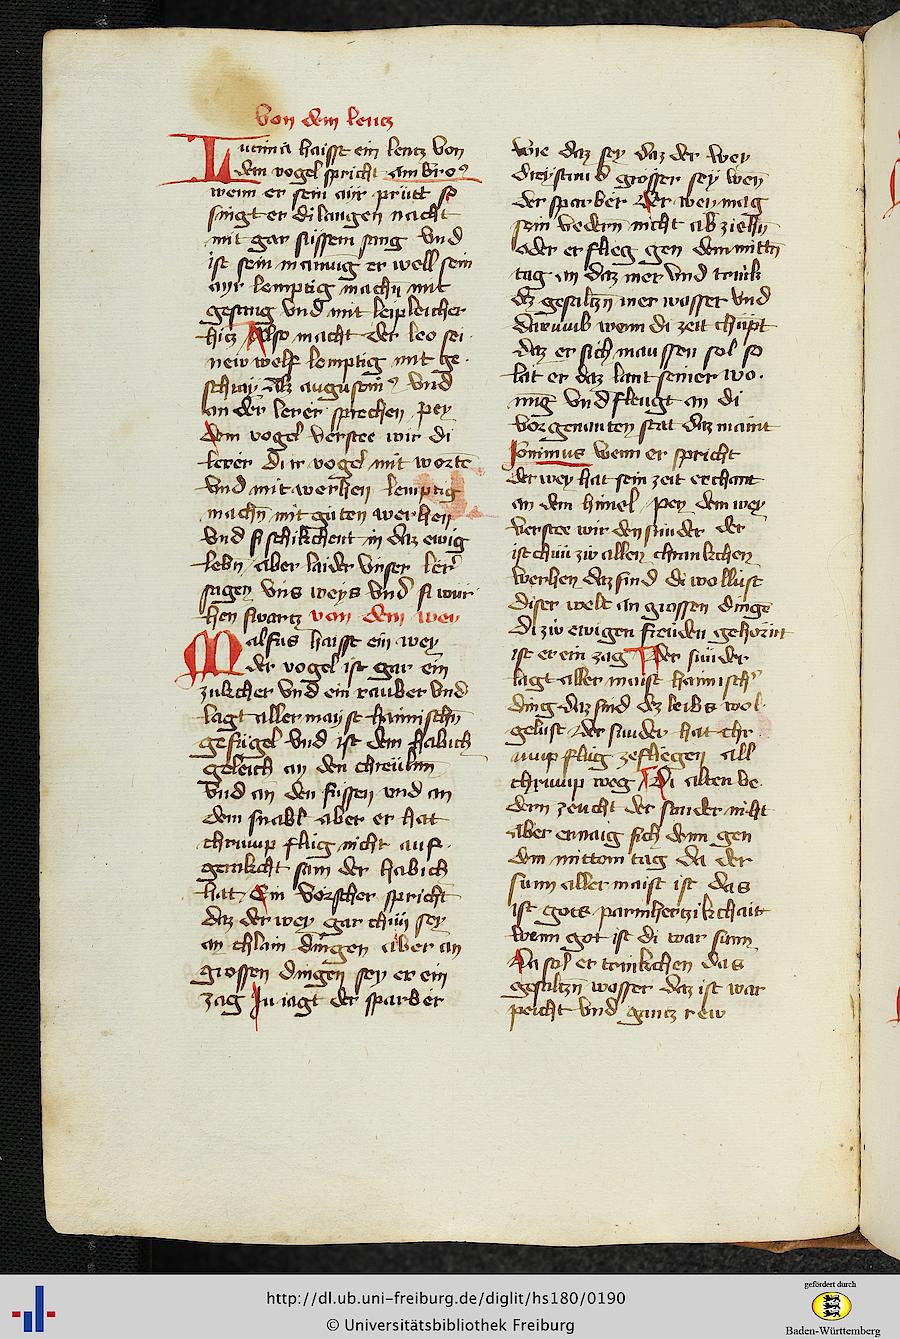 Von dem lentz
Lucinia haisst ein lentz von
dem vogel spricht ambro⁹
wenn er sein air prütt so
singt er di langen nacht
mit gar süssem sang Vnd
ist sein mainüg er well sein
ayr lemptig machn mit
gesang Vnd mit leipleicher
hicz Also macht der leo sei
new welf lemptig mit ge
schray alz augustin⁹ Vnd
an der lerer sprechen pey
dem vogel verstee wir di
lerer di ir vogel mit worte
Vnd mit werhen lemptig
machn mit guten werhen
Vnd si schikchent in daz ewig
lebn Aber laider vnser ler̄
sagen vns weys Vnd si wür
hen swartz von dem wey
Malfus haisst ein wey
der vogel ist gar ein
zukcher Vnd ein rauber Vnd
lagt aller mayst haimischn
gefügel Vnd ist dem habich
geleich an den chreulnn
Vnd an den füssen vnd an
dem snabl aber er hat
chrump flüg nicht auf
gerakcht sam der habich
hat Ein vorscher spricht
daz der wey gar chün sey
an chlain dingen aber an
grossen dingen sey er ein
zag In iagt der sparber
wie daz sey daz der wey
dreystund grosser sey wen
der sparber Der wey mag
sein vedern nicht abziehn
oder er flieg gen dem mittn
tag an daz mer Vnd trink
dz gesaltzn mer wasser Vnd
darumb wenn di zeit chüpt
daz er sich maussen sol so
lat er daz lant seiner wo
nūg Vnd fleugt an di
vorgenanten stat daz maint
Ionimus wenn er spricht
der wey hat sein zeit erchant
an dem himel pey dem wey
verstee wir den sünder der
ist chün zw allen chrankchen
werhen daz sind di wollust
diser welt an grossen dinge
di zw ewigen freuden gehornt
ist er ein zag Der sünder
lagt aller maist haimisch⁹
ding daz sind dz leibs wol
gelust Der sunder hat chr
ump flüg ze fliegen all
chrump weg Di alten ve
dern zeucht der sunder nicht
aber er naig sich denn gen
dem mittem tag da der
sunn aller maist ist das
ist gots parmherzikchait
wenn got ist di war sunn
Da sol er trinkchen das
gesaltzn wasser daz ist war
peicht Vnd gantz rew
http://dl.ub.uni-freiburg.de/diglit/hs180/0190
© Universitätsbibliothek Freiburg
gefördert durch
Baden-Württemberg